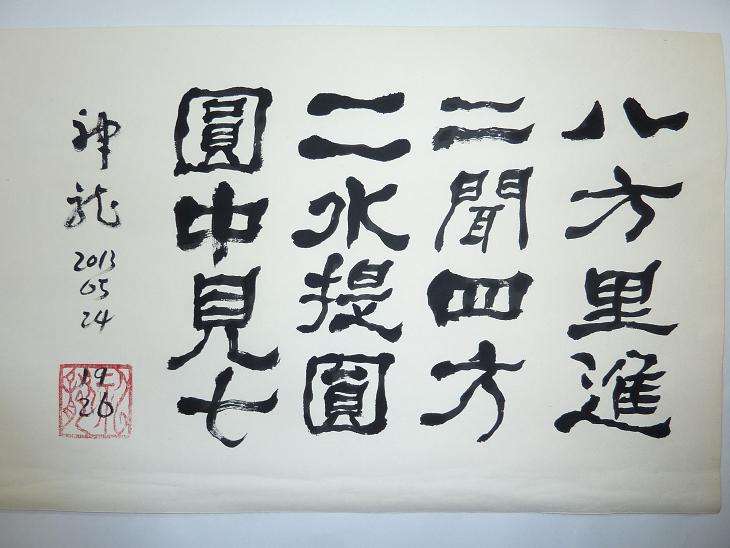 八方里進
二聞四方
二水提圓
圓中見七
神龍
2013
05
24
19
26